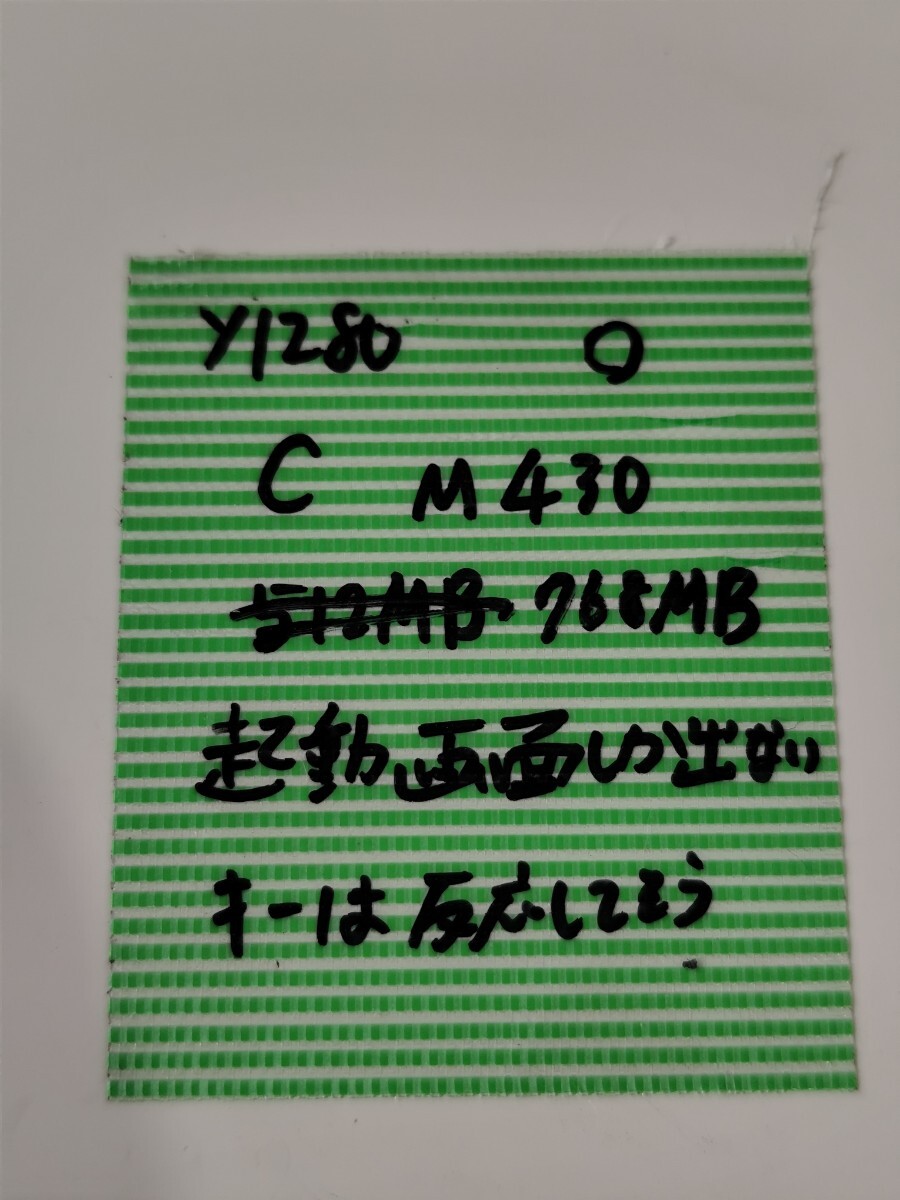 Y1280 O
C M430
512MB 768MB
起動画面しか出ない
キーは反応してそう